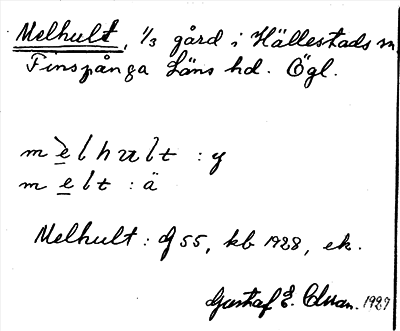 Melhult, 1/3 gård i Hällestads sn,
Finspånga Läns hd. Ögl.
m e l h u l t : y
m e l t : ä
Melhult : G 55, kb 1928, ek.
Gustaf E. 1927